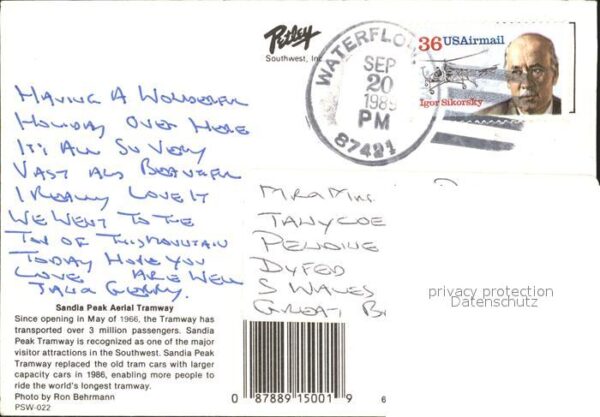 Petley
Southwest, Inc
WATERFLOW
SEP
20
1989
PM
87421
36 USAirmail
Igor Sikorsky
HAVING A WONDERFUL
HOLIDAY OVER HERE
IT'S ALL SO VERY
VAST AND BEAUTIFUL
I REALLY LOVE IT
WE WENT TO THE
TOP OF THIS MOUNTAIN
TODAY HOPE YOU
LOVE ARE WELL
GERRY.
MR & MRS
TANYCOE
PENDINE
DYFED
S WALES
GREAT
privacy protection
Datenschutz
Sandia Peak Aerial Tramway
Since opening in May of 1966, the Tramway has
transported over 3 million passengers. Sandia
Peak Tramway is recognized as one of the major
visitor attractions in the Southwest. Sandia Peak
Tramway replaced the old tram cars with larger
capacity cars in 1986, enabling more people to
ride the world's longest tramway.
Photo by Ron Behrmann
PSW-022
0 87889 15001 9
6